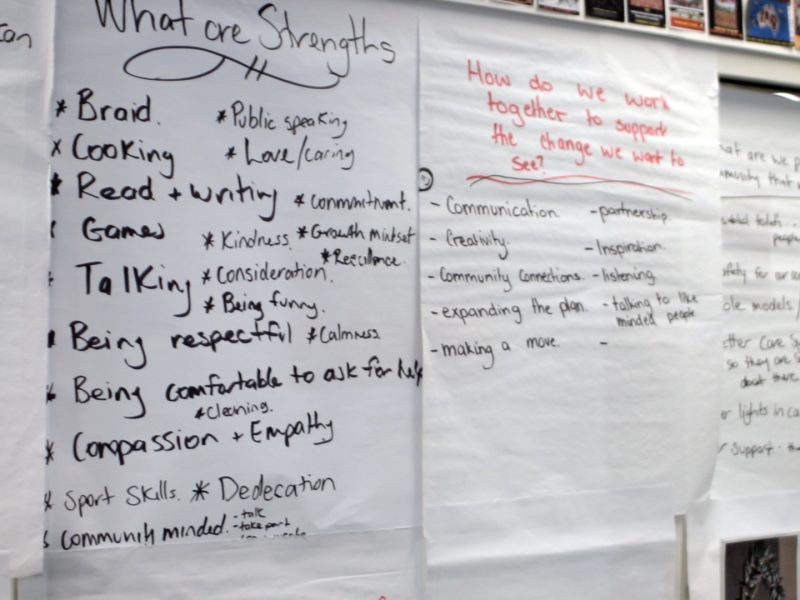 What are Strengths
* Braid. * Public speaking
* Cooking * Love/caring
* Read + writing * commitment.
* Games * Kindness. * Growth mindset
* Reecilience.
* Talking * Consideration.
* Being funny.
* Being respectful * Calmness
* Being comfortable to ask for help
* Cleaning.
* Compassion + Empathy
* Sport Skills. * Dedecation
* Community minded. - talk
- take part
How do we work
together to support
the change we want to
see?
- Communication. - partnership.
- Creativity. - Inspiration.
- Community connections. - listening
- expanding the plan. - talking to like
minded people
- making a move. -
are we
people
for our
models /
Care
so they are
about there
lights in
Support.